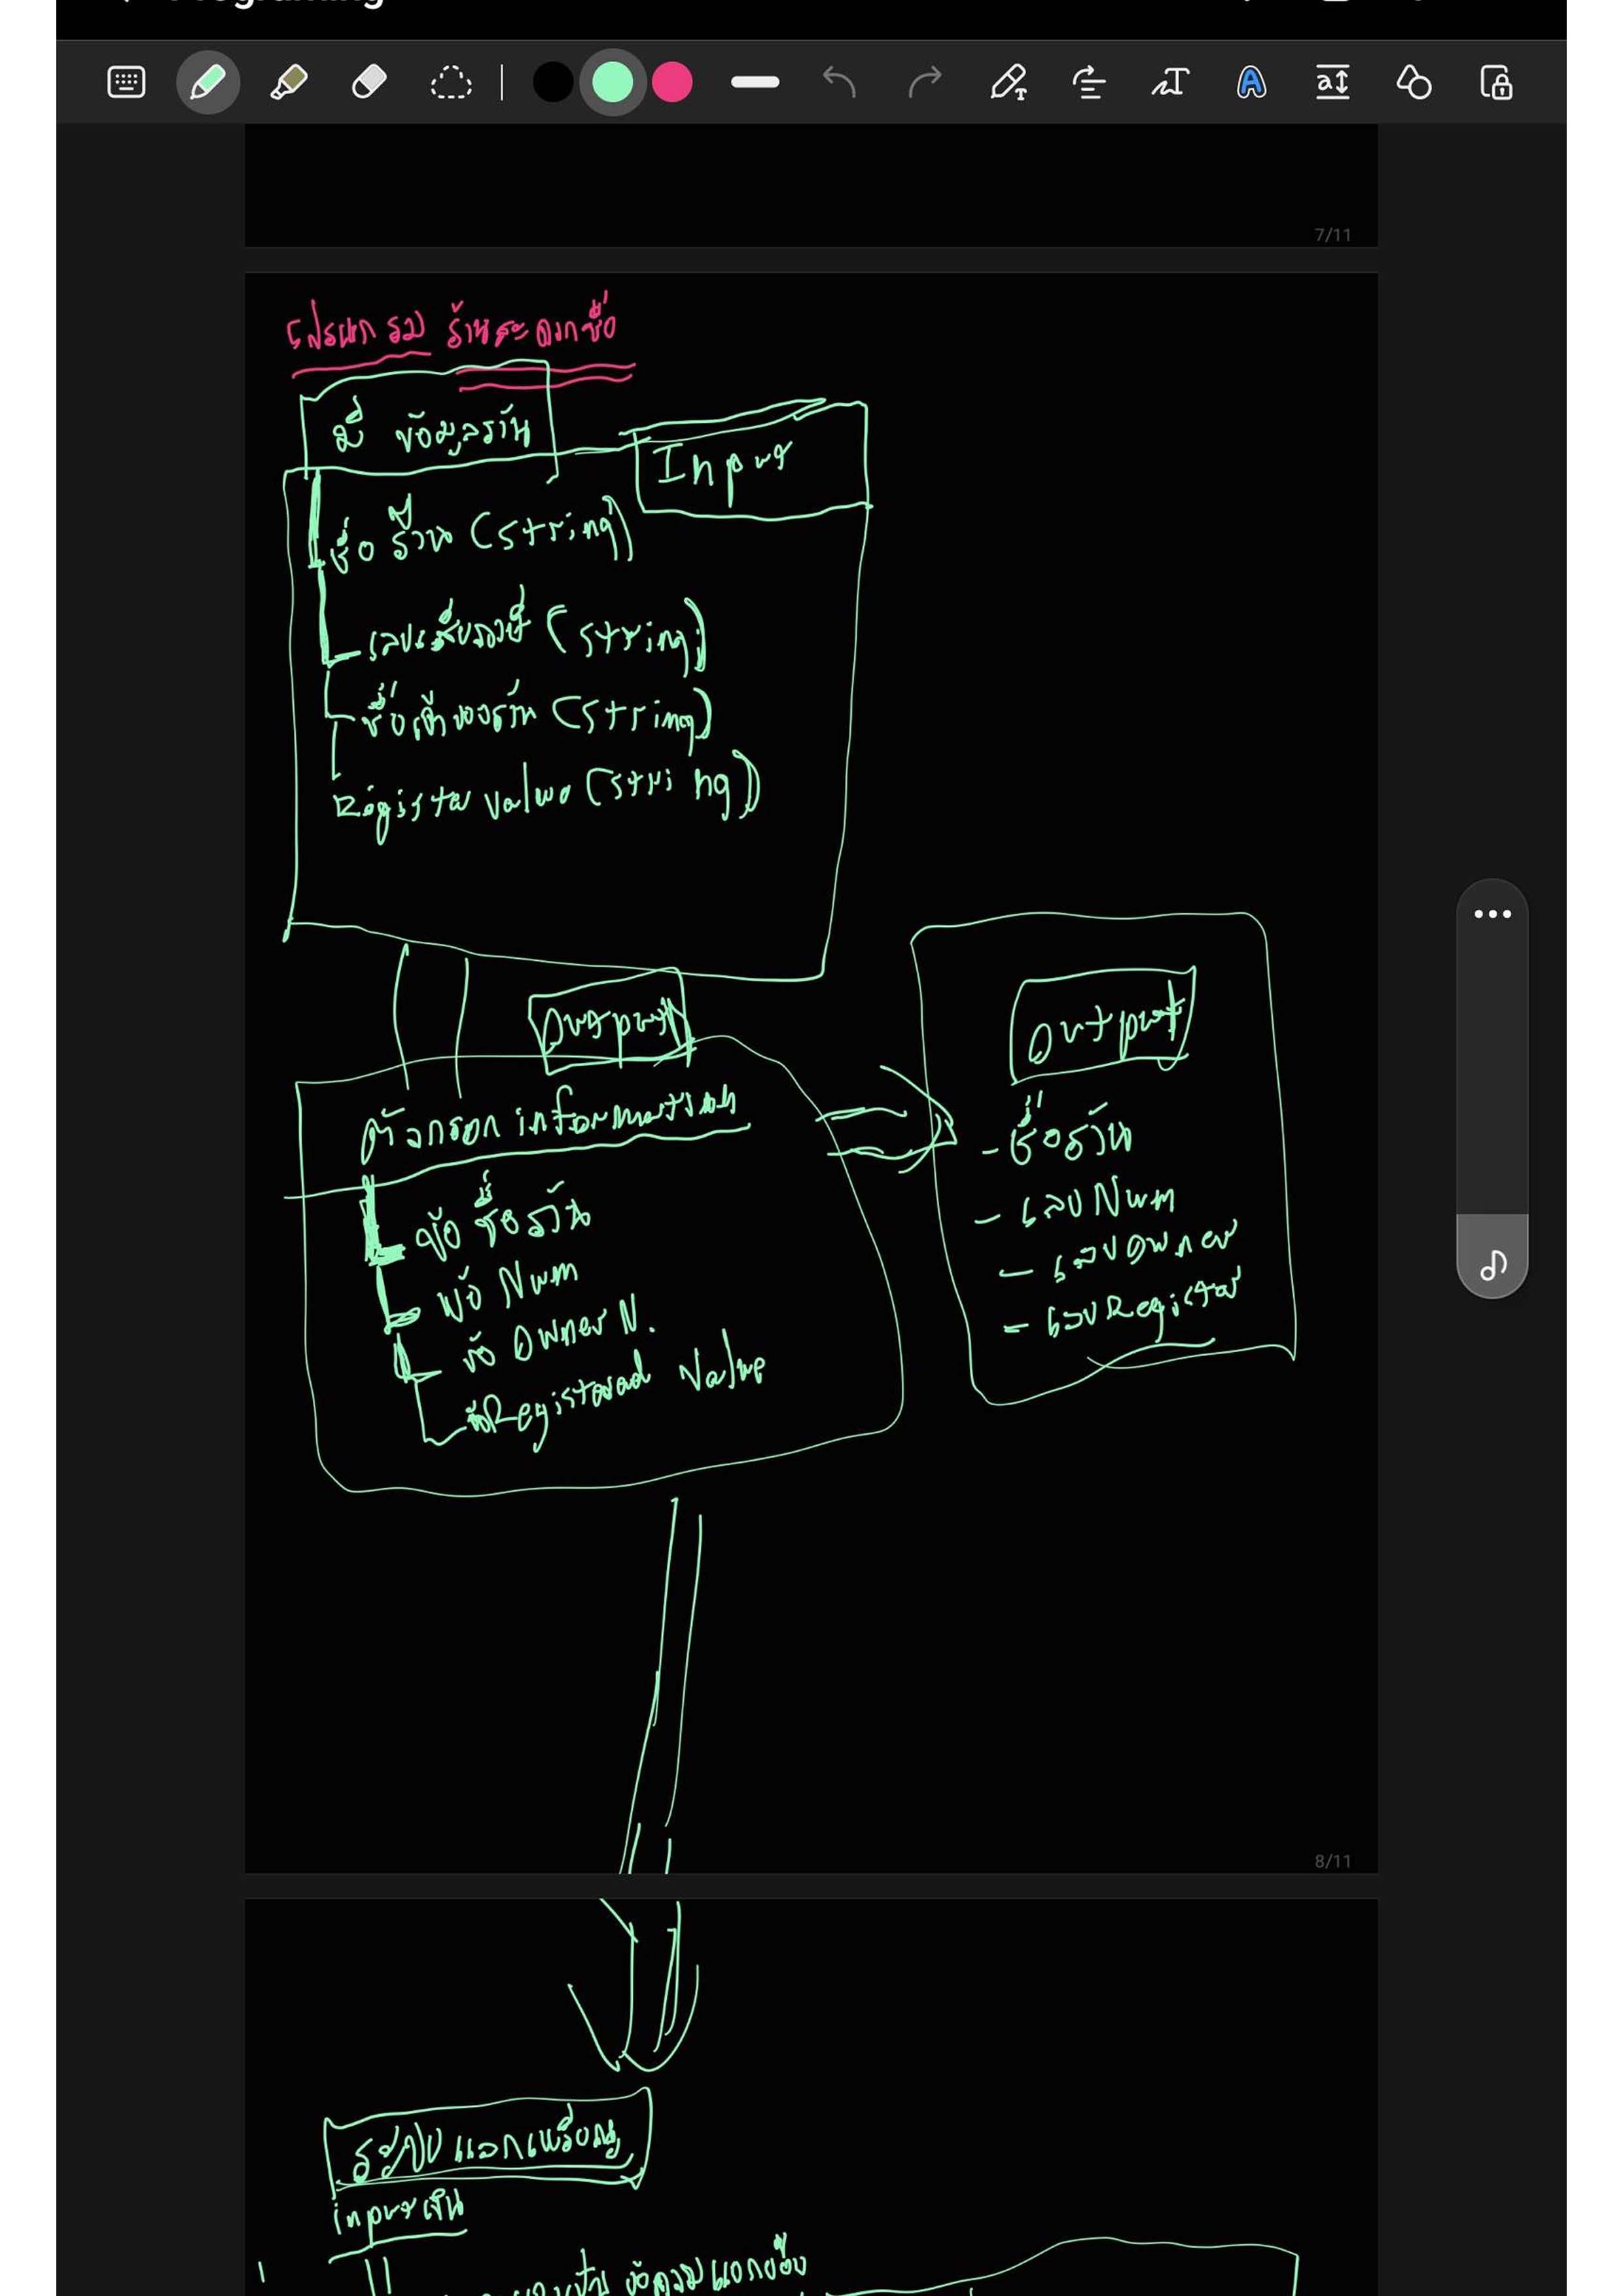 7/11
โปรแกรม ร้านสะดวกซื้อ
มี ข้อมูลร้าน
Input
ชื่อ ร้าน (string)
เลขเสียภาษี (string)
ชื่อเจ้าของร้าน (string)
Register value (string)
Output
ตัวกรอก information
ข้อ ชื่อร้าน
ข้อ Num
ข้อ Owner N.
ข้อ Registered Value
Output
- ชื่อร้าน
- เลข Num
- เลข Owner
- เลข Register
8/11
ระบบ แลกเหรียญ
input เงิน